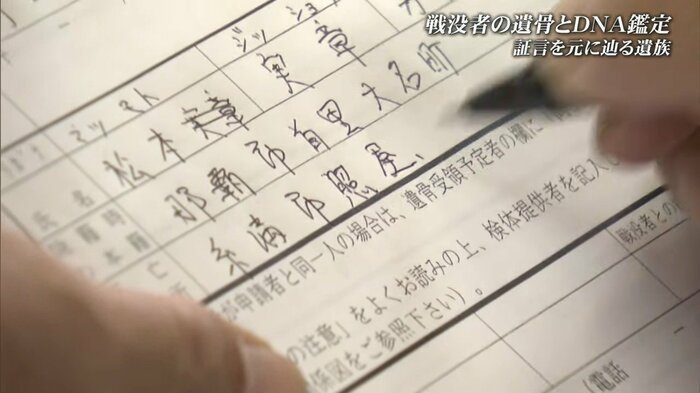 戦没者の遺骨とDNA鑑定
証言を元に辿る遺族
ジッショ
松本実章 実章
氏名
那覇市首里大名町
本籍
糸満市照屋
が申請者と同一人の場合は、遺骨受領予定者の欄に「同
の注意」をよくお読みの上、検体提供者を記入し
係図をご参照下さい）。
戦没者との
（電話